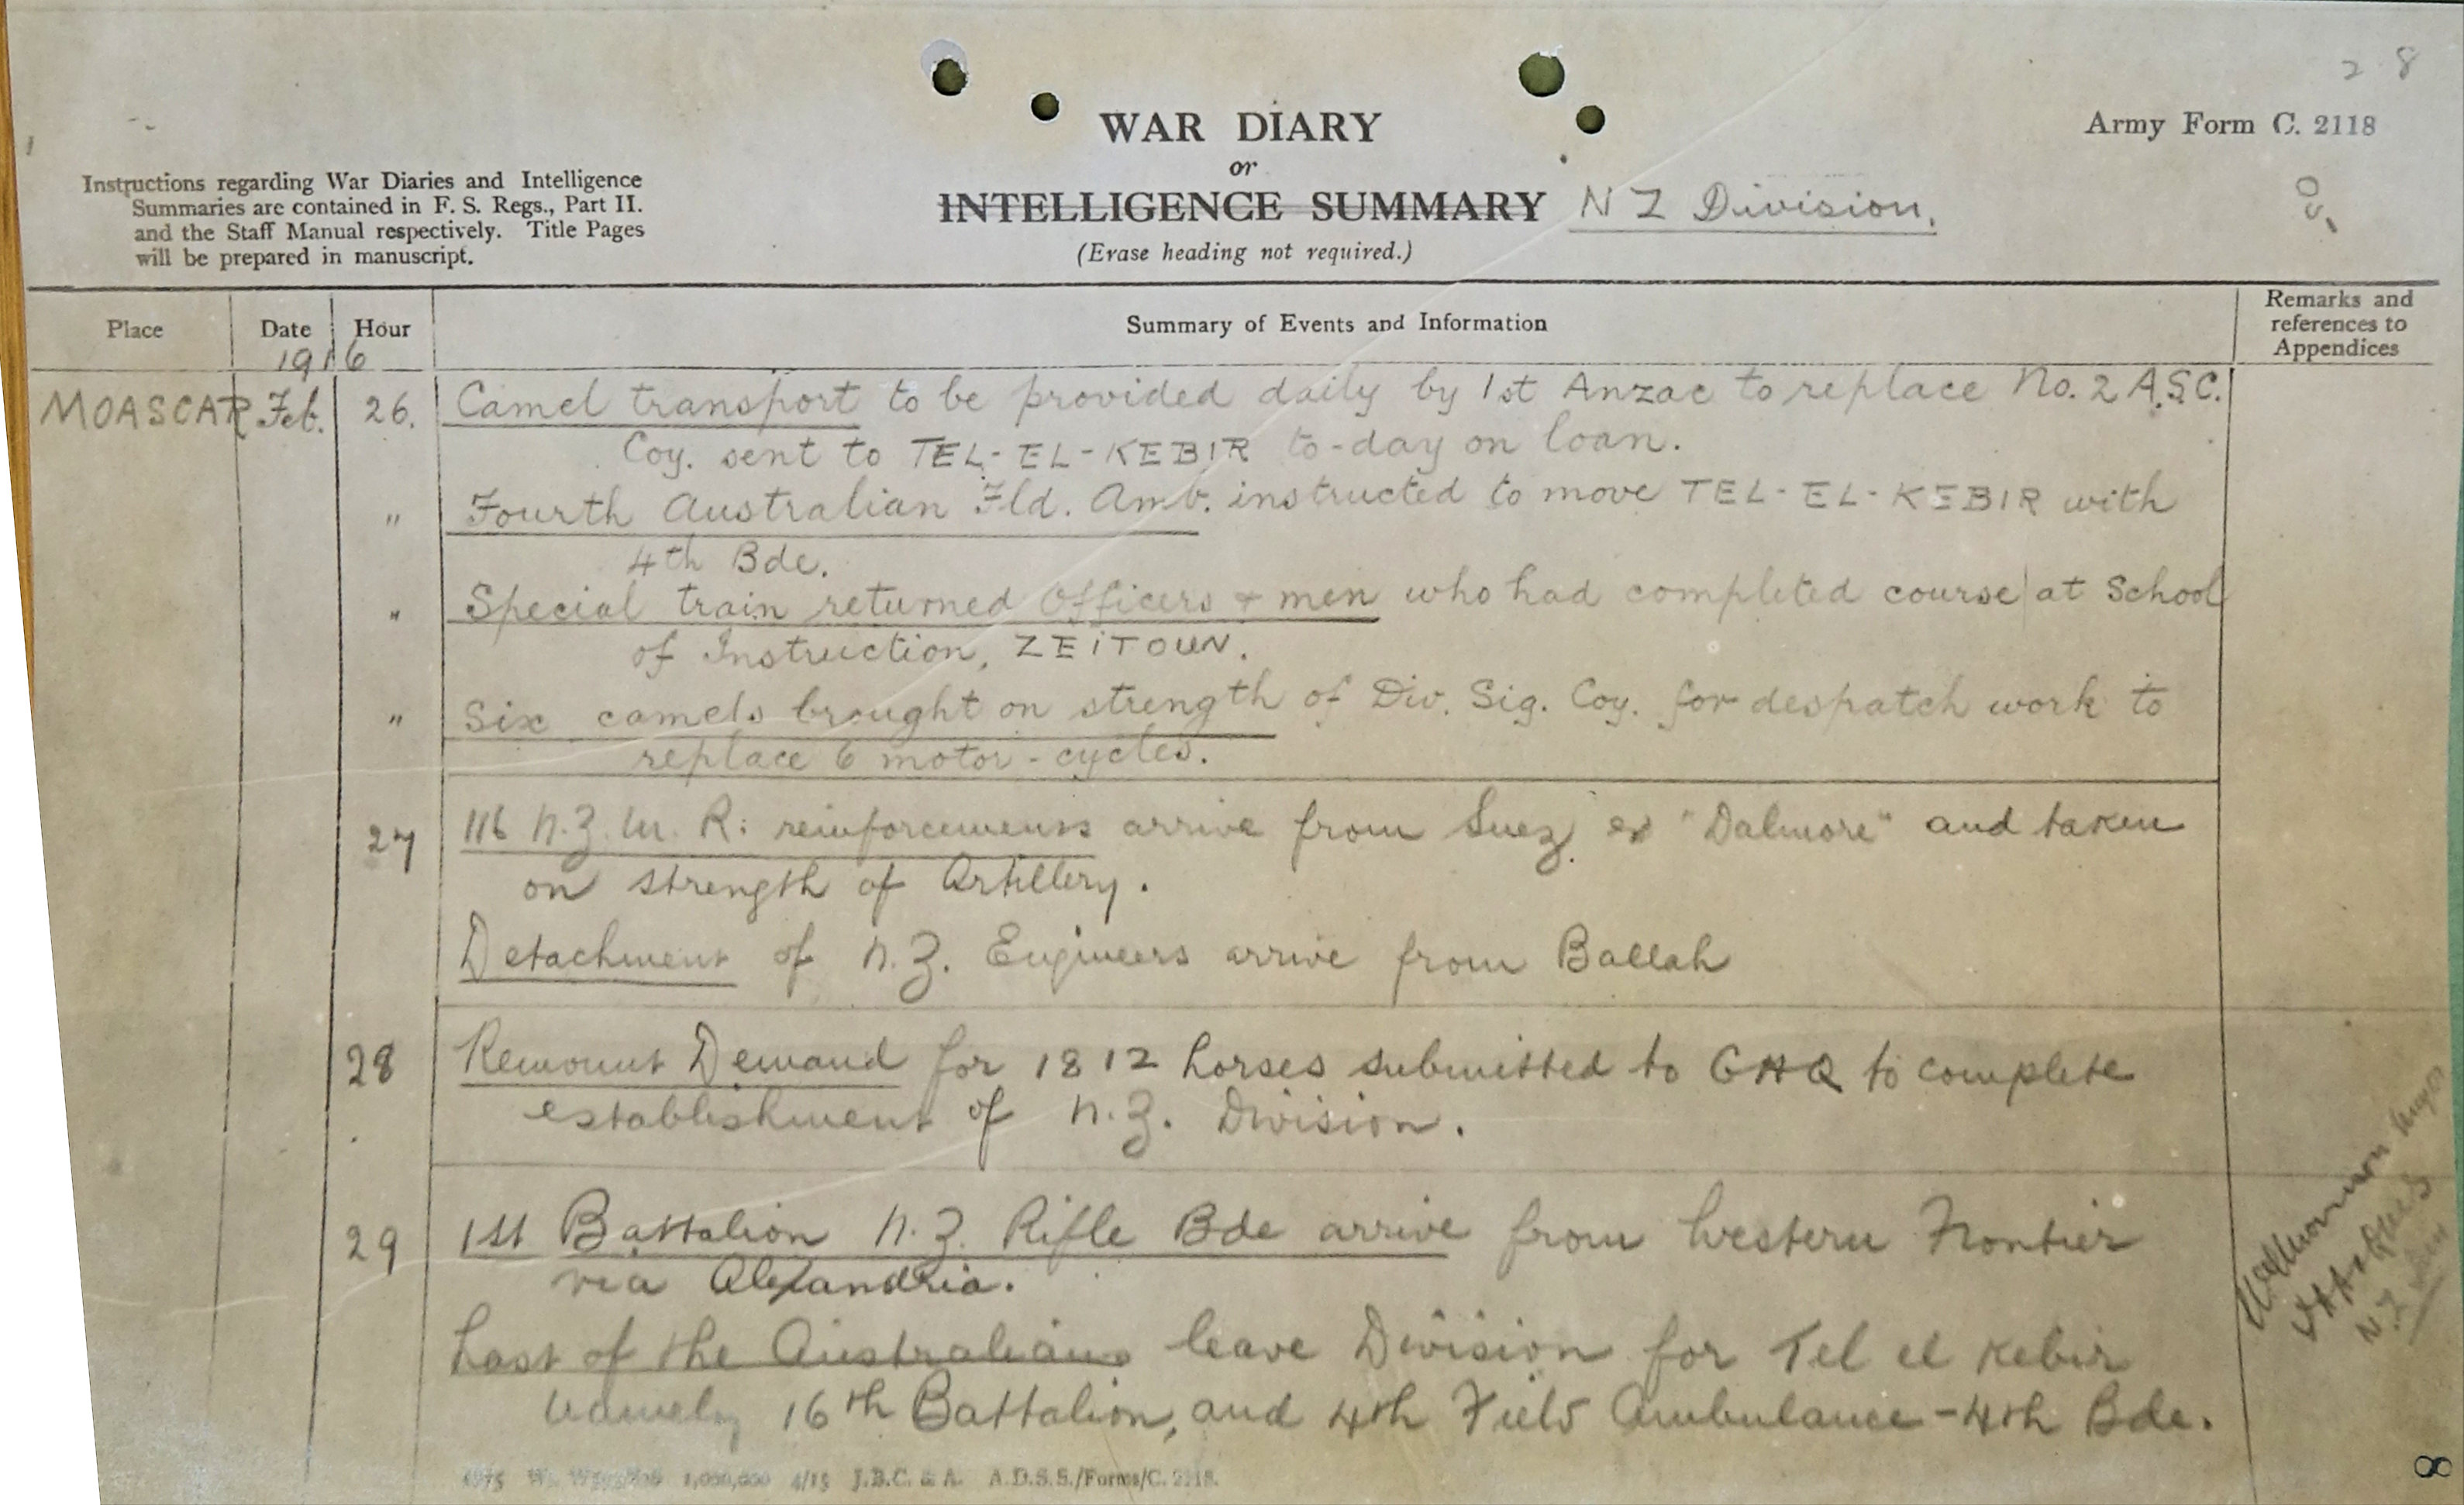 2 8
WAR DIARY
Army Form C. 2118
or
Instructions regarding War Diaries and Intelligence
Summaries are contained in F. S. Regs., Part II.
and the Staff Manual respectively. Title Pages
will be prepared in manuscript.
INTELLIGENCE SUMMARY NZ Division.
(Erase heading not required.)
Place Date Hour Summary of Events and Information Remarks and
references to
Appendices
1916
MOASCAR Feb. 26. Camel transport to be provided daily by 1st Anzac to replace No. 2 A.S.C.
Coy. sent to TEL-EL-KEBIR to-day on loan.
" Fourth Australian Fld. Amb. instructed to move TEL-EL-KEBIR with
4th Bde.
" Special train returned Officers + men who had completed course at School
of Instruction, ZEITOUN.
" Six camels brought on strength of Div. Sig. Coy. for despatch work to
replace 6 motor-cycles.
27 116 N.Z.M.R: reinforcements arrive from Suez ex "Dalmore" and taken
on strength of Artillery.
Detachment of N.Z. Engineers arrive from Ballah
28 Remount Demand for 1812 horses submitted to GHQ to complete
establishment of N.Z. Division.
29 1st Battalion N.Z. Rifle Bde arrive from Western Frontier
via Alexandria.
Last of the Australians leave Division for Tel el Kebir
namely 16th Battalion, and 4th Field Ambulance - 4th Bde.
1,000,000 4/15 J.B.C. & A. A.D.S.S./Forms/C. 2118.
8